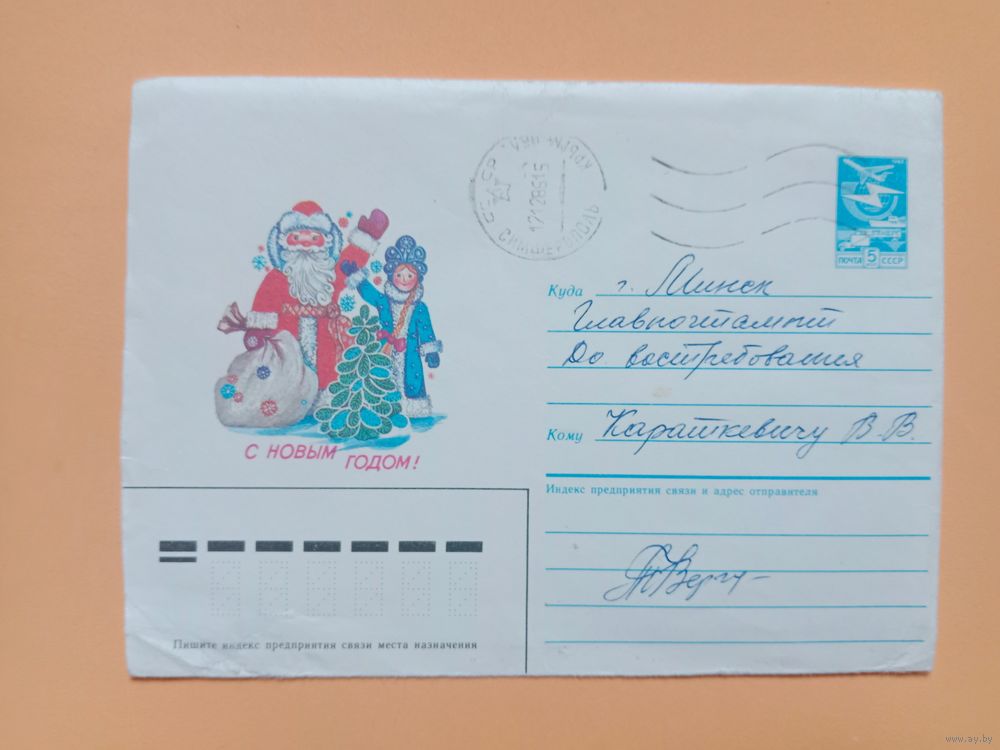 КРЫМ. ОБЛ.
1712861515
СИМФЕРОПОЛЬ
ПОЧТА 5 СССР
Куда г. Минск
Главпочтампт
До востребования
Кому Караткевичу В. В.
С НОВЫМ ГОДОМ!
Индекс предприятия связи и адрес отправителя
Пишите индекс предприятия связи места назначения
www.ay.by